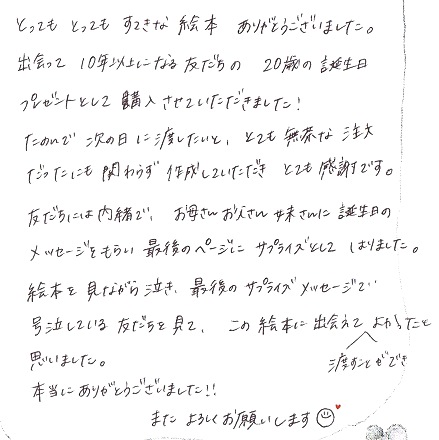 とっても とっても すてきな 絵本 ありがとうございました。
出会って 10年以上になる 友だちの 20歳の 誕生日
プレゼントとして 購入 させていただきました！
たのんで 次の日 に 渡したいと、とても 無茶な 注文
だったにも 関わらず 作成していただき とても 感謝です。
友だちには 内緒で、お母さん お父さん 妹さんに 誕生日の
メッセージをもらい 最後の ページに サプライズとして はりました。
絵本を 見ながら 泣き、最後の サプライズ メッセージで
号泣している 友だちを 見て、この 絵本に 出会えて よかったと
渡すことができ
思いました。
本当に ありがとうございました!!
また よろしく お願いします